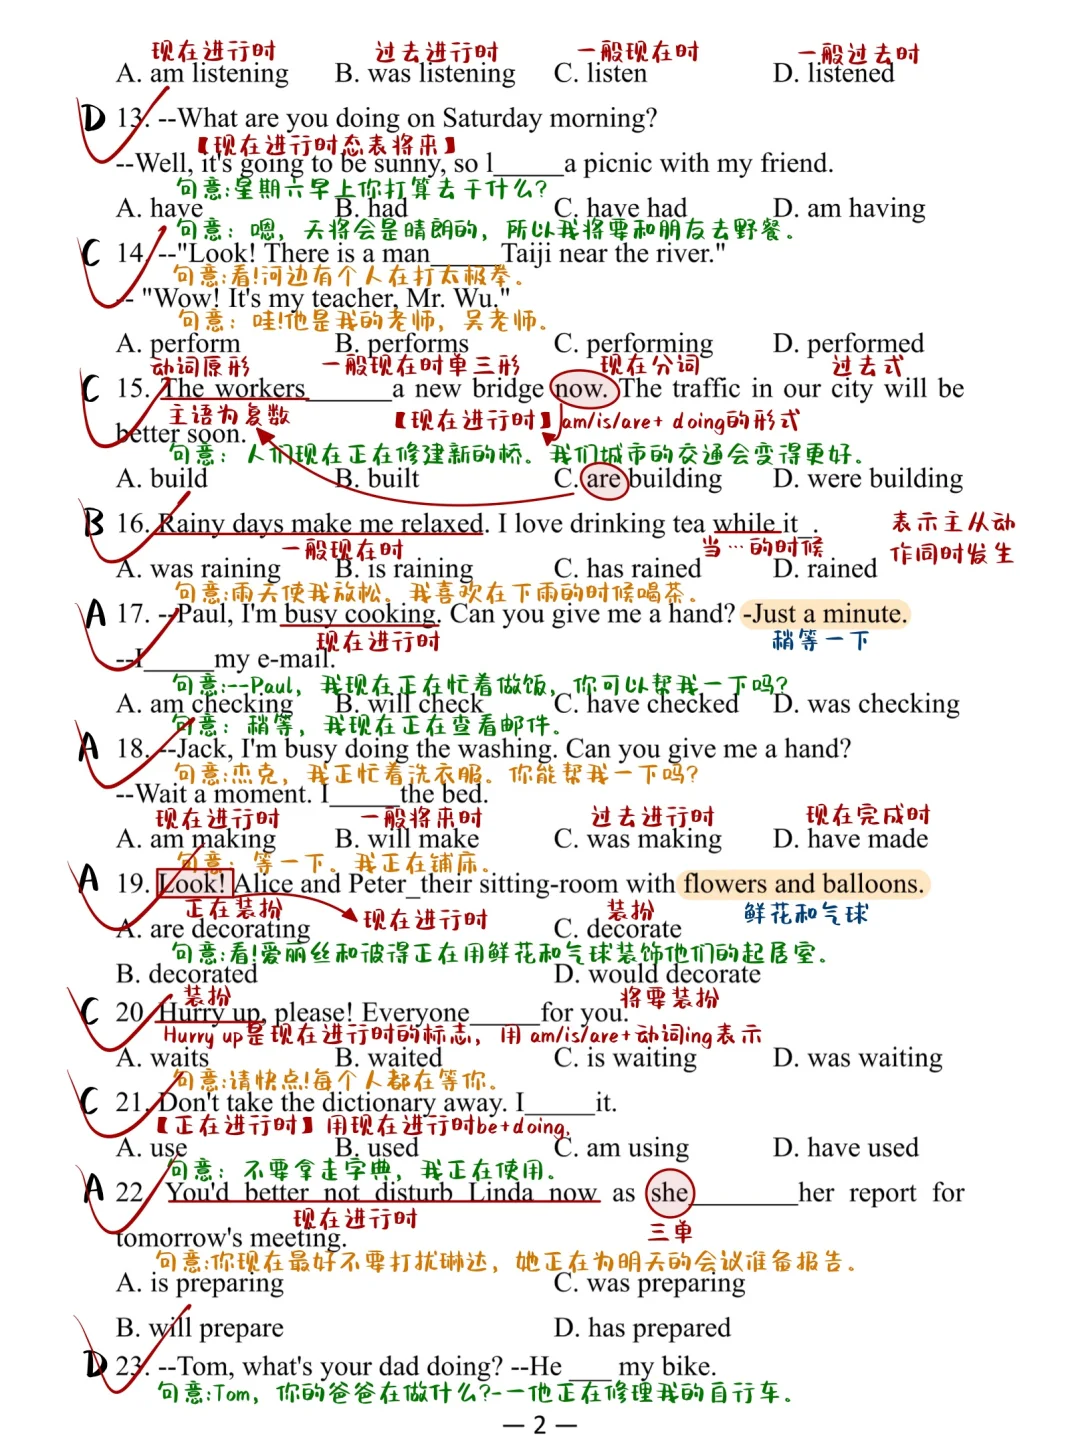 现在进行时 过去进行时 一般现在时 一般过去时
A. am listening B. was listening C. listen D. listened
D 13. --What are you doing on Saturday morning?
【现在进行时态表将来】
--Well, it's going to be sunny, so l_____a picnic with my friend.
句意:星期六早上你打算去干什么?
A. have B. had C. have had D. am having
句意：嗯，天将会是晴朗的，所以我将要和朋友去野餐。
C 14. --"Look! There is a man_____Taiji near the river."
句意:看!河边有个人在打太极拳。
-- "Wow! It's my teacher, Mr. Wu."
句意：哇!他是我的老师，吴老师。
A. perform B. performs C. performing D. performed
动词原形 一般现在时单三形 现在分词 过去式
C 15. The workers______a new bridge now. The traffic in our city will be
主语为复数 【现在进行时】am/is/are+ doing的形式
better soon.
句意：人们现在正在修建新的桥。我们城市的交通会变得更好。
A. build B. built C. are building D. were building
B 16. Rainy days make me relaxed. I love drinking tea while it _. 表示主从动
一般现在时 当…的时候 作同时发生
A. was raining B. is raining C. has rained D. rained
句意:雨天使我放松。我喜欢在下雨的时候喝茶。
A 17. --Paul, I'm busy cooking. Can you give me a hand? -Just a minute.
现在进行时 稍等一下
--I_____my e-mail.
句意:--Paul，我现在正在忙着做饭，你可以帮我一下吗?
A. am checking B. will check C. have checked D. was checking
句意：稍等，我现在正在查看邮件。
A 18. --Jack, I'm busy doing the washing. Can you give me a hand?
句意:杰克，我正忙着洗衣服。你能帮我一下吗?
--Wait a moment. I_____the bed.
现在进行时 一般将来时 过去进行时 现在完成时
A. am making B. will make C. was making D. have made
句意：等一下。我正在铺床。
A 19. Look! Alice and Peter_their sitting-room with flowers and balloons.
正在装扮 现在进行时 装扮 鲜花和气球
A. are decorating C. decorate
句意:看!爱丽丝和彼得正在用鲜花和气球装饰他们的起居室。
B. decorated D. would decorate
装扮 将要装扮
C 20. Hurry up, please! Everyone_____for you.
Hurry up是现在进行时的标志，用 am/is/are+动词ing表示
A. waits B. waited C. is waiting D. was waiting
句意:请快点!每个人都在等你。
C 21. Don't take the dictionary away. I_____it.
【正在进行时】用现在进行时be+doing,
A. use B. used C. am using D. have used
句意：不要拿走字典，我正在使用。
A 22 You'd better not disturb Linda now as she________her report for
现在进行时 三单
tomorrow's meeting.
句意:你现在最好不要打扰琳达，她正在为明天的会议准备报告。
A. is preparing C. was preparing
B. will prepare D. has prepared
D 23. --Tom, what's your dad doing? --He ___ my bike.
句意:Tom，你的爸爸在做什么?-一他正在修理我的自行车。
— 2 —